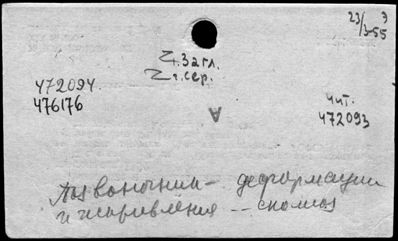 23/3-55 Э
т. загл.
т. сер.
472094
476176
А
чит.
472093
Позвоночник - деформации
и искривления - сколиоз